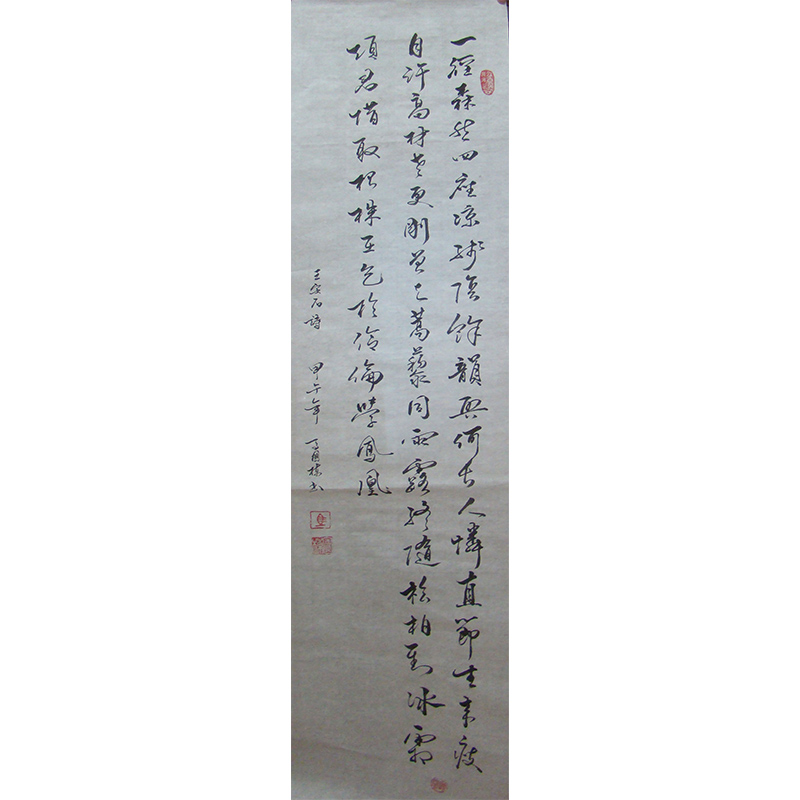 一徑森然四座涼殘陰餘韻興何長人憐直節生來瘦
自許高材老更剛曾与蒿藜同雨露終隨松柏到冰霜
煩君惜取根株在乞於伶倫學鳳凰
王安石詩 甲午年